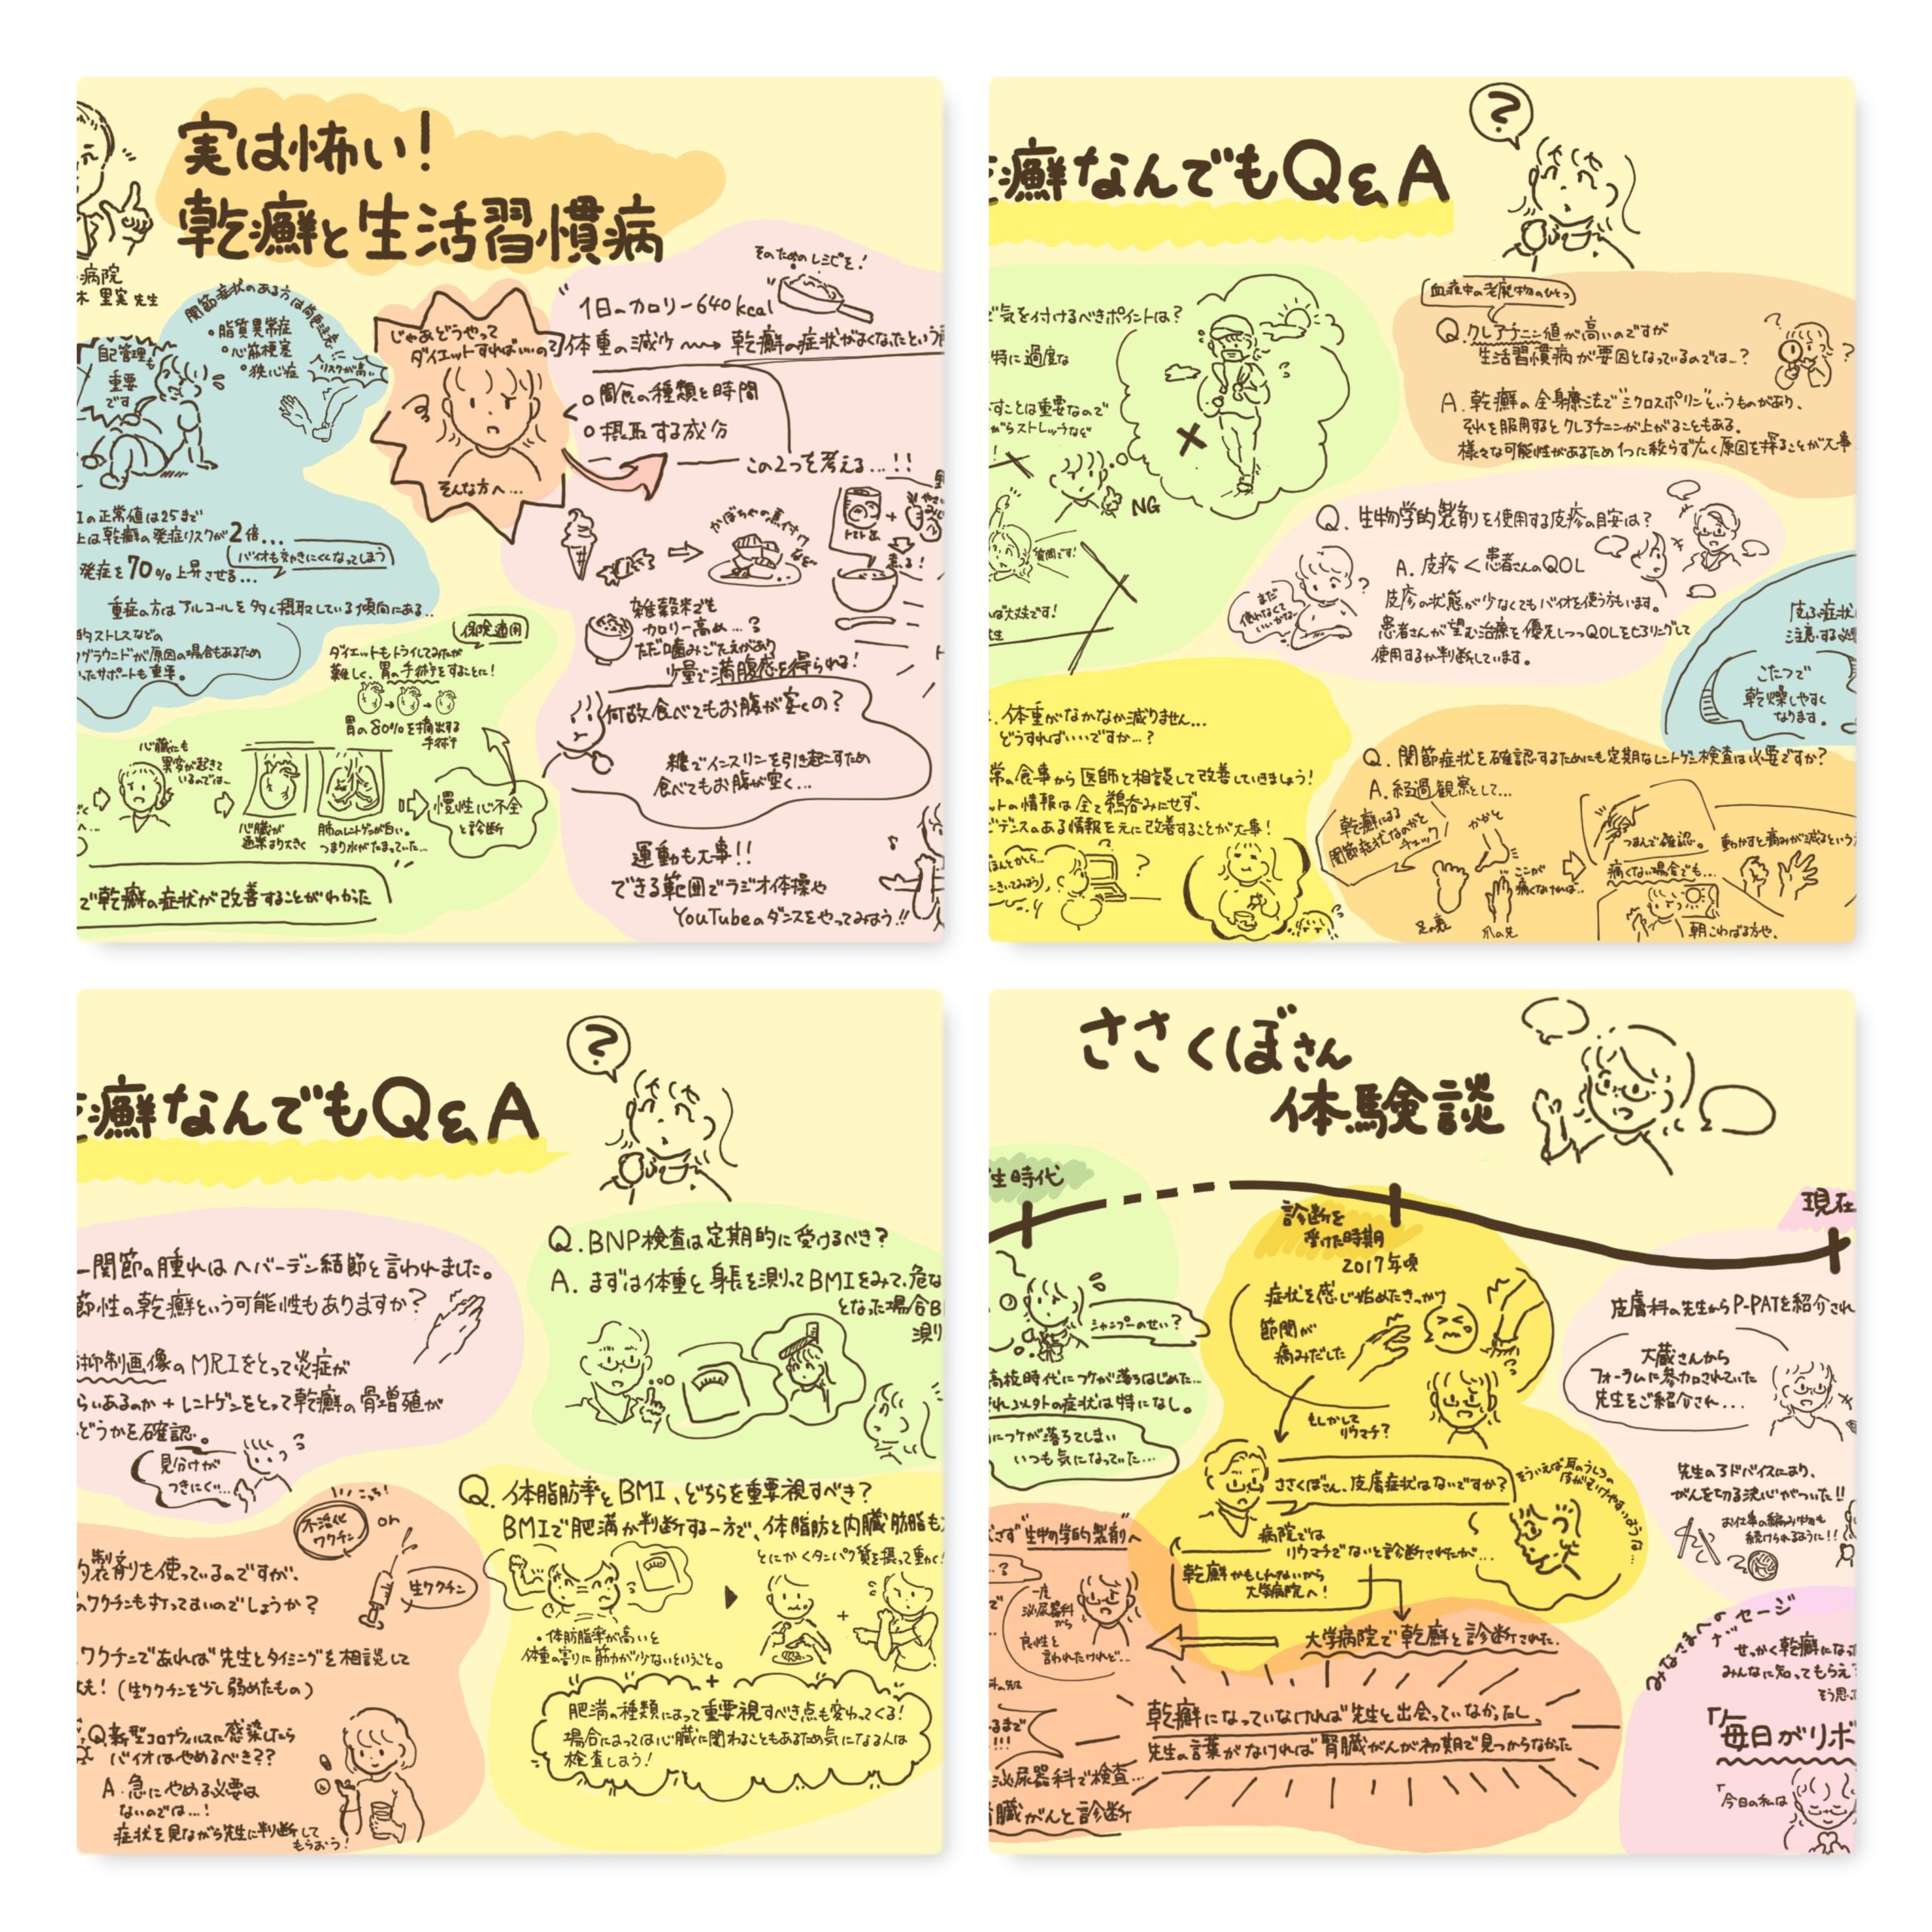 実は怖い!
乾癬と生活習慣病
病院
里実 先生
関節症状のある方は
・脂質異常症
・心筋梗塞
・狭心症
リスクが高い
自己管理も
重要
です
じゃあどうやって
ダイエットすればいいの?
そんな方へ…
の正常値は25まで
上は乾癬の発症リスクが2倍…
バイオも効きにくくなってしまう
発症を70%上昇させる…
重症の方はアルコールを多く摂取している傾向にある..
的ストレスなどの
グラウンドが原因の場合もあるため
ったサポートも重要。
そのためのレシピを!
1日のカロリー640kcal
体重の減少 → 乾癬の症状がよくなったという
○間食の種類と時間
○摂取する成分
この2つを考える…!!
かぼちゃの煮付け
など
トマト缶
+
煮る!
雑穀米でも
カロリー高め…?
ただ噛みごたえがあり
少量で満腹感を得られる!
何故食べてもお腹が空くの?
糖でインスリンを引き起こすため
食べてもお腹が空く…
運動も大事!!
できる範囲でラジオ体操や
YouTubeのダンスをやってみよう!!
保険適用
ダイエットもトライしてみたが
難しく、胃の手術をすることに!
胃の80%を摘出する
手術
心臓にも
異変が起きて
いるのでは…
心臓が
通常より大きく
肺のレントゲンが白い。
つまり水がたまっていた…
慢性心不全
と診断
で乾癬の症状が改善することがわかった
癬なんでもQ&A
?
気を付けるべきポイントは?
特に過度な
すことは重要なので
がらストレッチなど
NG
質問です!
ば大丈夫です!
血液中の老廃物のひとつ
Q.クレアチニン値が高いのですが
生活習慣病が要因となっているのでは…?
A.乾癬の全身療法でミクロスポリンというものがあり、
それを服用するとクレアチニンが上がることもある。
様々な可能性があるため1つに絞らず広く原因を探ることが大事
Q.生物学的製剤を使用する皮疹の目安は?
A.皮疹<患者さんのQOL
皮疹の状態が少なくてもバイオを使う方もいます。
患者さんが望む治療を優先しつつQOLをヒアリングして
使用するか判断しています。
まだ
使わなくて
いいかな…
皮ふ症状
注意する必
こたつで
乾燥しやすく
なります。
体重がなかなか減りません…
どうすればいいですか…?
常の食事から医師と相談して改善していきましょう!
ットの情報は全て鵜呑みにせず、
ビデンスのある情報を元に改善することが大事!
Q.関節症状を確認するためにも定期なレントゲン検査は必要ですか?
A.経過観察として…
乾癬による
関節症状なのかと
チェック!
かかと
足の裏
爪の先
ここが
痛くなければ…
つまんで確認。
痛くない場合でも…
動かすと痛みが減るという
朝こわばる方や、
癬なんでもQ&A
?
一関節の腫れはヘバーデン結節と言われました。
節性の乾癬という可能性もありますか?
抑制画像のMRIをとって炎症が
らいあるのか+レントゲンをとって乾癬の骨増殖が
どうかを確認。
見分けが
つきにくい…
Q.BNP検査は定期的に受けるべき?
A.まずは体重と身長を測ってBMIをみて、危な
となった場合B
測り
こっち!
不活化
ワクチン
or
生ワクチン
製剤を使っているのですが、
ワクチンも打ってよいのでしょうか?
ワクチンであれば先生とタイミングを相談して
夫!(生ワクチンを少し弱めたもの)
Q.新型コロナウィルスに感染したら
バイオはやめるべき??
A.急にやめる必要は
ないのでは…!
症状を見ながら先生に判断して
もらおう!
Q.体脂肪率とBMI、どちらを重要視すべき?
BMIで肥満か判断する一方で、体脂肪と内臓脂肪も
とにかくタンパク質を摂って動く!
+
・体脂肪率が高いと
体重の割りに筋力が少ないということ。
+
肥満の種類によって重要視すべき点も変わってくる!
場合によっては心臓に関わることもあるため気になる人は
検査しよう!
ささくぼさん
体験談
生時代
シャンプーのせい?
高校時代にフケが落ちはじめた…
それ以外の症状は特になし。
にフケが落ちてしまい
いつも気になっていた…
診断を
受けた時期
2017年頃
症状を感じ始めたきっかけ
節関が
痛みだした
もしかして
リウマチ?
ささくぼさん、皮膚症状はないですか?
そういえば耳のうしろの
皮がむけやすいような…
病院では
リウマチでないと診断されたが…
乾癬かもしれないから
大学病院へ!
大学病院で乾癬と診断された.
さず"生物学的製剤へ
一度
泌尿器科
から
良性と
言われたけれど…
るまで
!!!
泌尿器科で検査…
臓がんと診断
乾癬になっていなければ先生と出会っていなかったし、
先生の言葉がなければ腎臓がんが初期で見つからなかった
現在
皮膚科の先生からP-PATを紹介され
大蔵さんから
フォーラムに参加されていた
先生をご紹介され…
先生のアドバイスにより、
がんを切る決心がついた!!
お仕事の編み物も
続けられるように!!
みなさまへのメッセージ
せっかく乾癬になっ
みんなに知ってもらえ
そう思
「毎日がリボ
「今日の私は